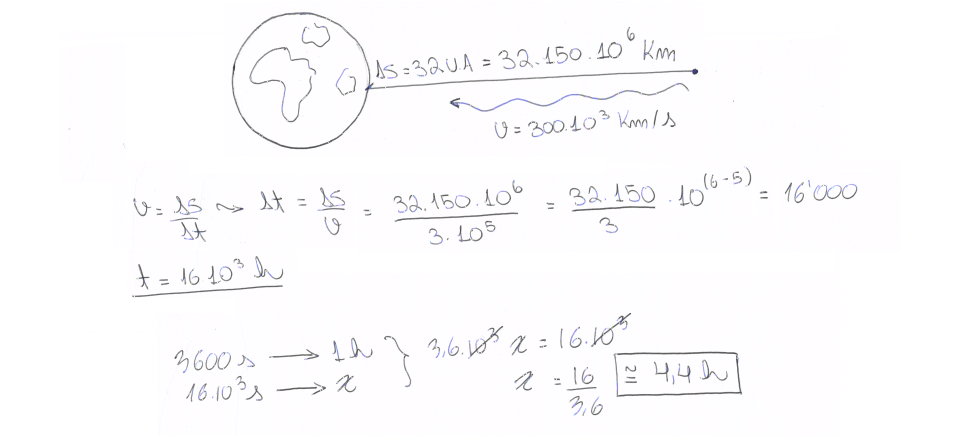 Δs = 32 U.A = 32.150.10⁶ Km
v = 300.10³ Km/s
v = Δs/Δt ⤳ Δt = Δs/v = 32.150.10⁶/3.10⁵ = 32.150/3 . 10⁽⁶⁻⁵⁾ = 16'000
t = 16.10³ h
3600 s → 1 h } 3,6.10³ x = 16.10³
16.10³ s → x
x = 16/3,6 ≅ 4,4 h